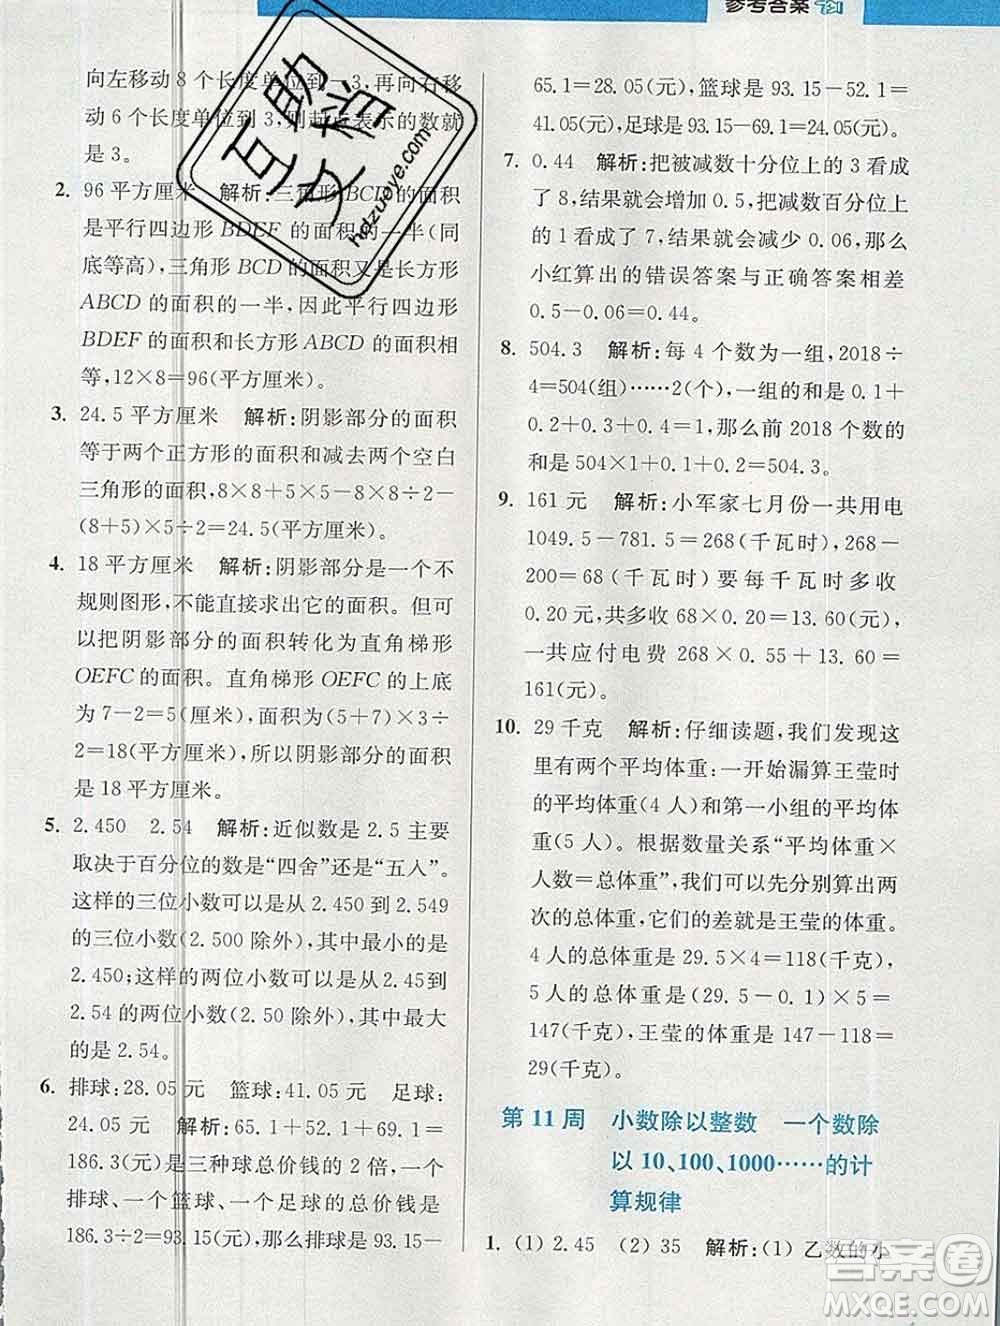 参考答案
向左移动 8 个长度单位到-3,再向右移
动 6 个长度单位到 3,则起点表示的数就
是 3。
2. 96 平方厘米 解析:三角形 BCD 的面积
是平行四边形 BDEF 的面积的一半(同
底等高),三角形 BCD 的面积又是长方形
ABCD 的面积的一半,因此平行四边形
BDEF 的面积和长方形 ABCD 的面积相
等,12×8=96(平方厘米)。
3. 24.5 平方厘米 解析:阴影部分的面积
等于两个正方形的面积和减去两个空白
三角形的面积,8×8+5×5-8×8÷2-
(8+5)×5÷2=24.5(平方厘米)。
4. 18 平方厘米 解析:阴影部分是一个不
规则图形,不能直接求出它的面积。但可
以把阴影部分的面积转化为直角梯形
OEFC 的面积。直角梯形 OEFC 的上底
为 7-2=5(厘米),面积为(5+7)×3÷
2=18(平方厘米),所以阴影部分的面积
是 18 平方厘米。
5. 2.450 2.54 解析:近似数是 2.5 主要
取决于百分位的数是“四舍”还是“五入”。
这样的三位小数可以是从 2.450 到 2.549
的三位小数(2.500 除外),其中最小的是
2.450;这样的两位小数可以是从 2.45 到
2.54 的两位小数(2.50 除外),其中最大
的是 2.54。
6. 排球:28.05 元 篮球:41.05 元 足球:
24.05 元 解析:65.1+52.1+69.1=
186.3(元)是三种球总价钱的 2 倍,一个
排球、一个篮球、一个足球的总价钱是
186.3÷2=93.15(元),那么排球是 93.15-
65.1=28.05(元),篮球是 93.15-52.1=
41.05(元),足球是 93.15-69.1=24.05(元)。
7. 0.44 解析:把被减数十分位上的 3 看成
了 8,差就会增加 0.5,把减数百分位上的
1 看成了 7,差就会减少 0.06,那么
小红算出的错误答案与正确答案相差
0.5-0.06=0.44。
8. 504.3 解析:每 4 个数为一组,2018÷
4=504(组)……2(个),一组的和是 0.1+
0.2+0.3+0.4=1,那么前 2018 个数的
和是 504×1+0.1+0.2=504.3。
9. 161 元 解析:小军家七月份一共用电
1049.5-781.5=268(千瓦时),268-
200=68(千瓦时)要每千瓦时多收
0.20 元,共多收 68×0.20=13.60(元),
一共应付电费 268×0.55+13.60=
161(元)。
10. 29 千克 解析:仔细读题,我们发现这
里有两个平均体重:一开始漏算王莹时
的平均体重(4 人)和第一小组的平均体
重(5 人)。根据数量关系“平均体重×
人数=总体重”,我们可以先分别算出两
次的总体重,它们的差就是王莹的体重。
4 人的总体重是 29.5×4=118(千克),
5 人的总体重是(29.5-0.1)×5=
147(千克),王莹的体重是 147-118=
29(千克)。
第 11 周 小数除以整数 一个数除
以 10、100、1000……的计
算规律
1. (1) 2.45 (2) 35 解析:(1) 乙数的小
直助
文稻
hdzuoye.com
答案圈
MXQE.COM